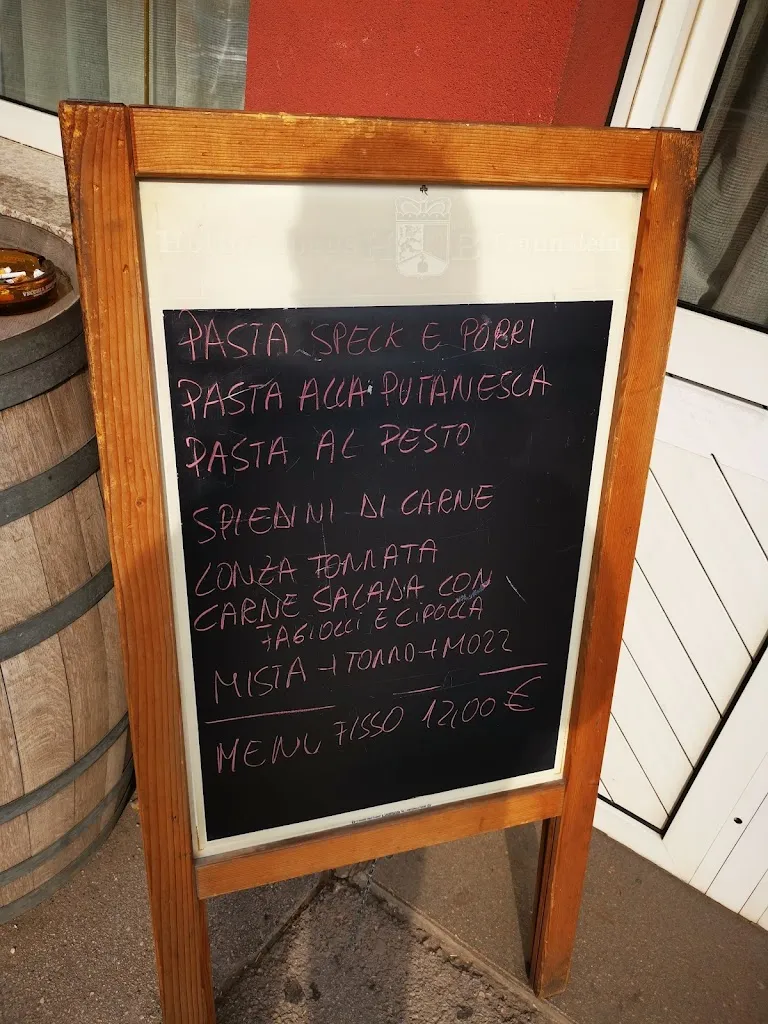 PASTA SPECK E PORRI
PASTA ALLA PUTANESCA
PASTA AL PESTO
SPIEDINI DI CARNE
LONZA TONNATA
CARNE SALADA CON
FAGIOLI E CIPOLLA
MISTA + TONNO + MOZZ
MENU FISSO 12,00 €